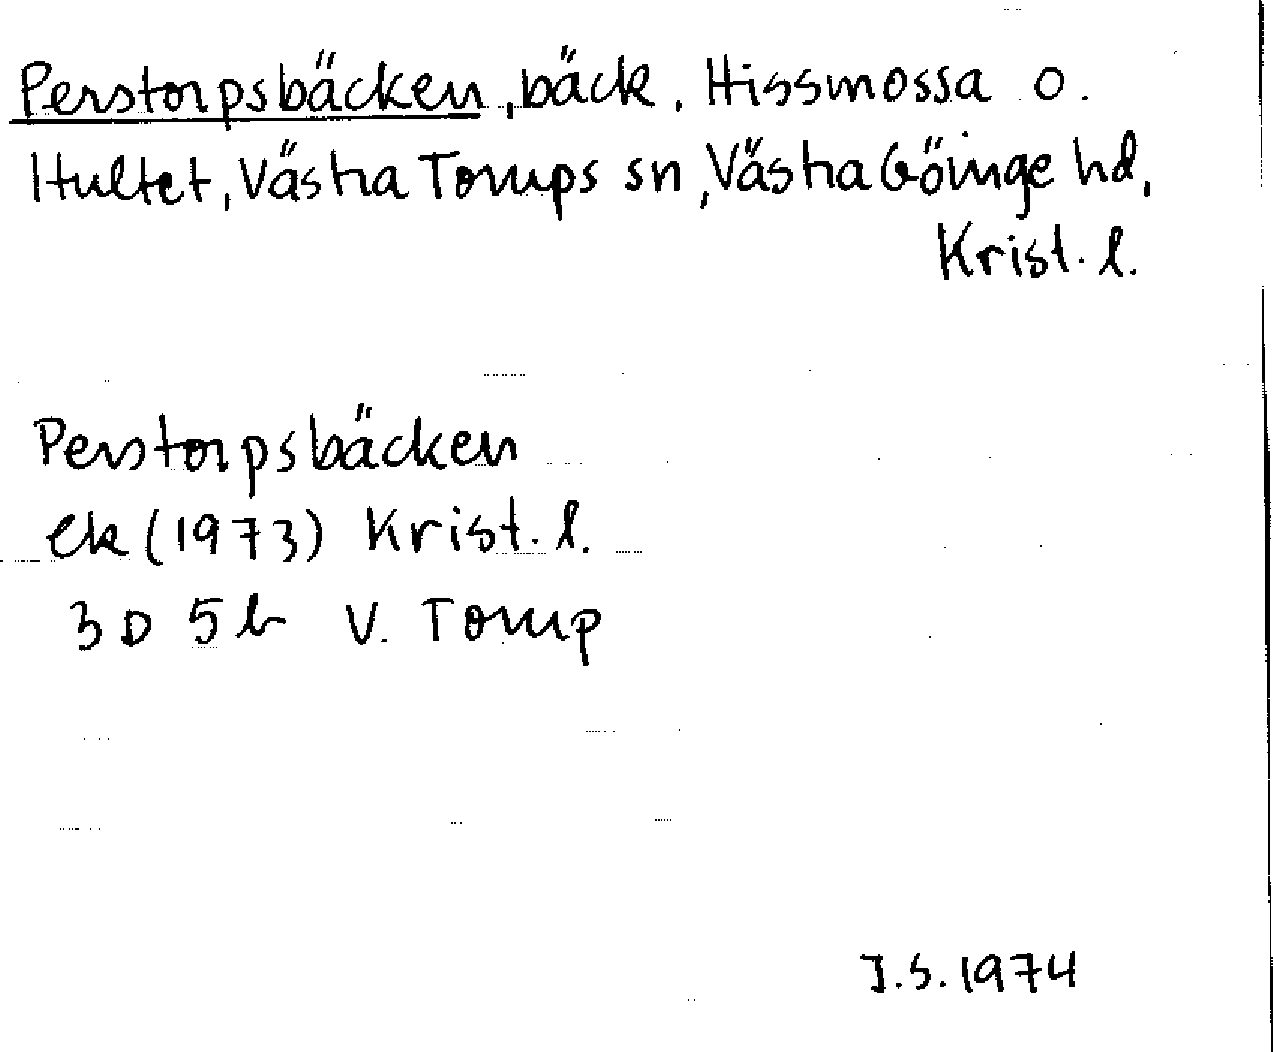 Perstorpsbäcken, bäck, Hissmossa o.
Hultet, Västra Torups sn, Västra Göinge hd,
Krist. l.
Perstorpsbäcken
ek (1973) Krist. l.
3 D 5 b V. Torup
J.S. 1974